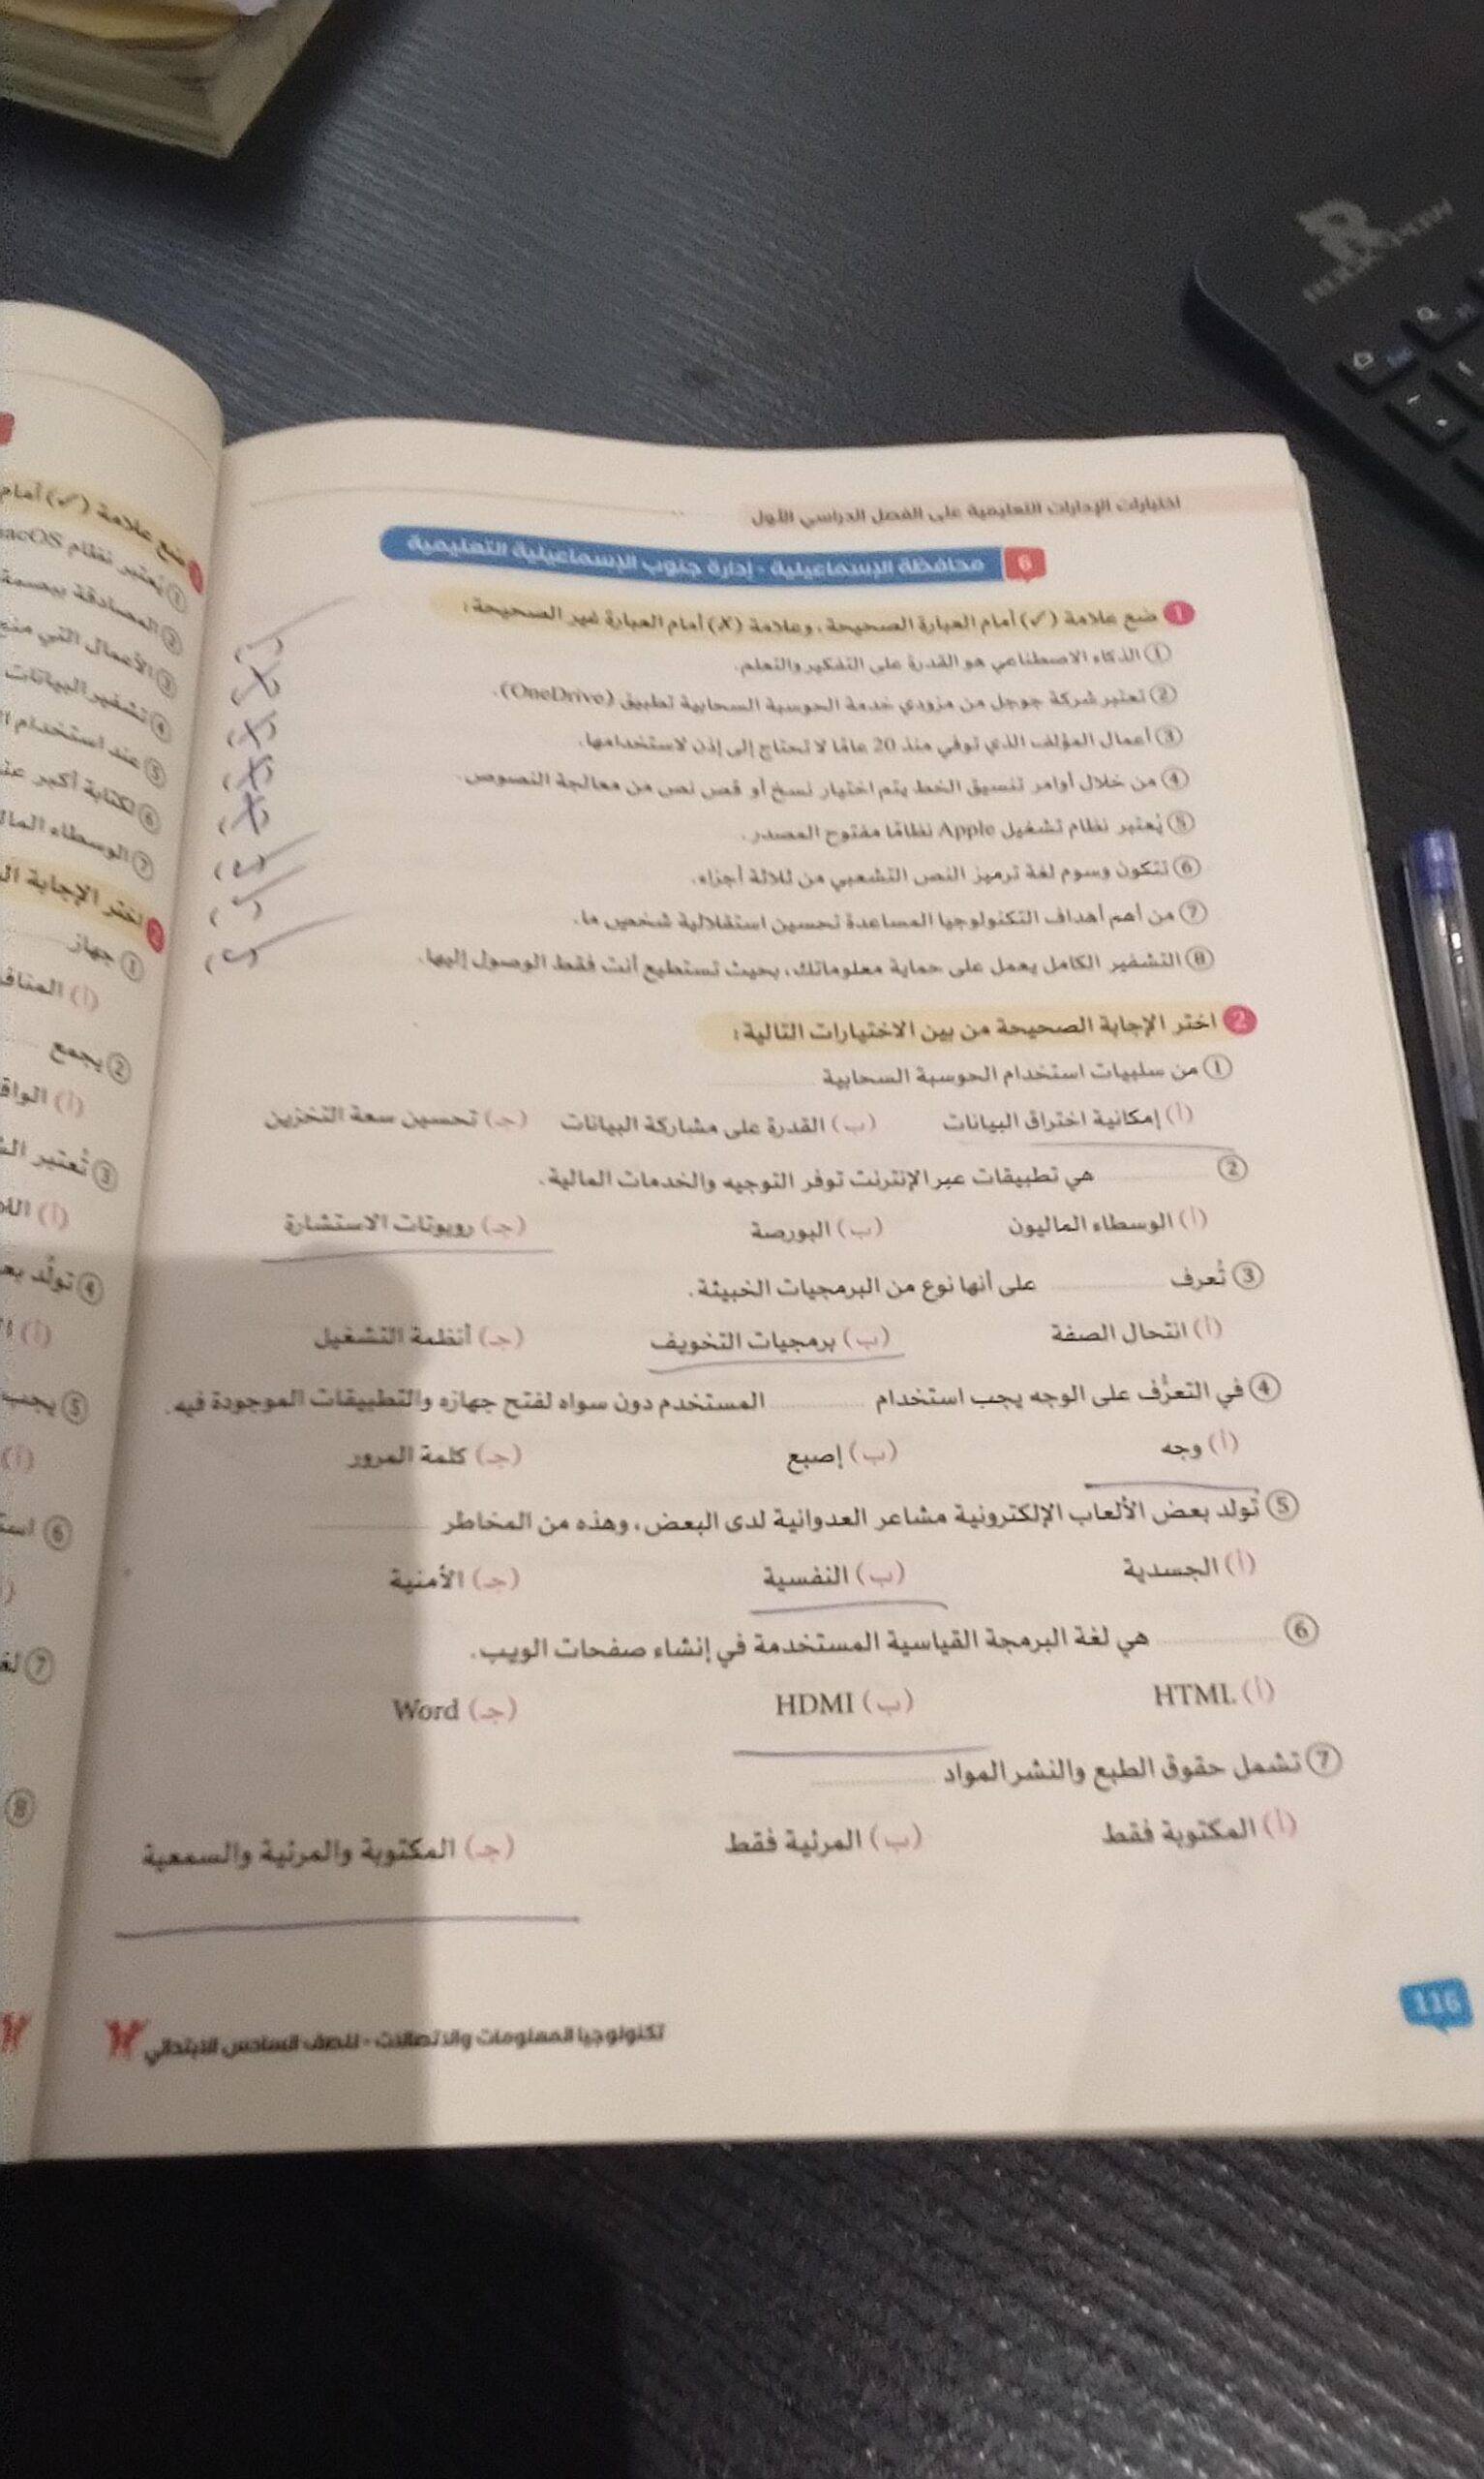 اختبارات الإدارات التعليمية على الفصل الدراسي الأول
6 محافظة الإسماعيلية - إدارة جنوب الإسماعيلية التعليمية
1 ضع علامة (✓) أمام العبارة الصحيحة، وعلامة (✗) أمام العبارة غير الصحيحة:
① الذكاء الاصطناعي هو القدرة على التفكير والتعلم.
② تعتبر شركة جوجل من مزودي خدمة الحوسبة السحابية تطبيق (OneDrive).
③ أعمال المؤلف الذي توفي منذ 20 عامًا لا تحتاج إلى إذن لاستخدامها.
④ من خلال أوامر تنسيق الخط يتم اختيار نسخ أو قص نص من معالجة النصوص.
⑤ يُعتبر نظام تشغيل Apple نظامًا مفتوح المصدر.
⑥ تتكون وسوم لغة ترميز النص التشعبي من ثلاثة أجزاء.
⑦ من أهم أهداف التكنولوجيا المساعدة تحسين استقلالية شخص ما.
⑧ التشفير الكامل يعمل على حماية معلوماتك، بحيث تستطيع أنت فقط الوصول إليها.
2 اختر الإجابة الصحيحة من بين الاختيارات التالية:
① من سلبيات استخدام الحوسبة السحابية ............
(أ) إمكانية اختراق البيانات (ب) القدرة على مشاركة البيانات (جـ) تحسين سعة التخزين
② ............ هي تطبيقات عبر الإنترنت توفر التوجيه والخدمات المالية.
(أ) الوسطاء الماليون (ب) البورصة (جـ) روبوتات الاستشارة
③ تُعرف ............ على أنها نوع من البرمجيات الخبيثة.
(أ) انتحال الصفة (ب) برمجيات التخويف (جـ) أنظمة التشغيل
④ في التعرُّف على الوجه يجب استخدام ............ المستخدم دون سواه لفتح جهازه والتطبيقات الموجودة فيه.
(أ) وجه (ب) إصبع (جـ) كلمة المرور
⑤ تولد بعض الألعاب الإلكترونية مشاعر العدوانية لدى البعض، وهذه من المخاطر ............
(أ) الجسدية (ب) النفسية (جـ) الأمنية
⑥ ............ هي لغة البرمجة القياسية المستخدمة في إنشاء صفحات الويب.
(أ) HTML (ب) HDMI (جـ) Word
⑦ تشمل حقوق الطبع والنشر المواد ............
(أ) المكتوبة فقط (ب) المرئية فقط (جـ) المكتوبة والمرئية والسمعية
116
تكنولوجيا المعلومات والاتصالات - للصف السادس الابتدائي
ضع علامة (✓) أمام
① يُعتبر نظام macOS
② المصادقة ببصمة
③ الأعمال التي
④ تشفير البيانات
⑤ عند استخدام
⑥ لكتابة أكبر
⑦ الوسطاء
2 اختر الإجابة
① جهاز
(أ)
② يجمع
(أ)
③ تُعتبر
(أ)
④ تولّد
(أ)
⑤ يجب
(أ)
⑥
⑦
⑧